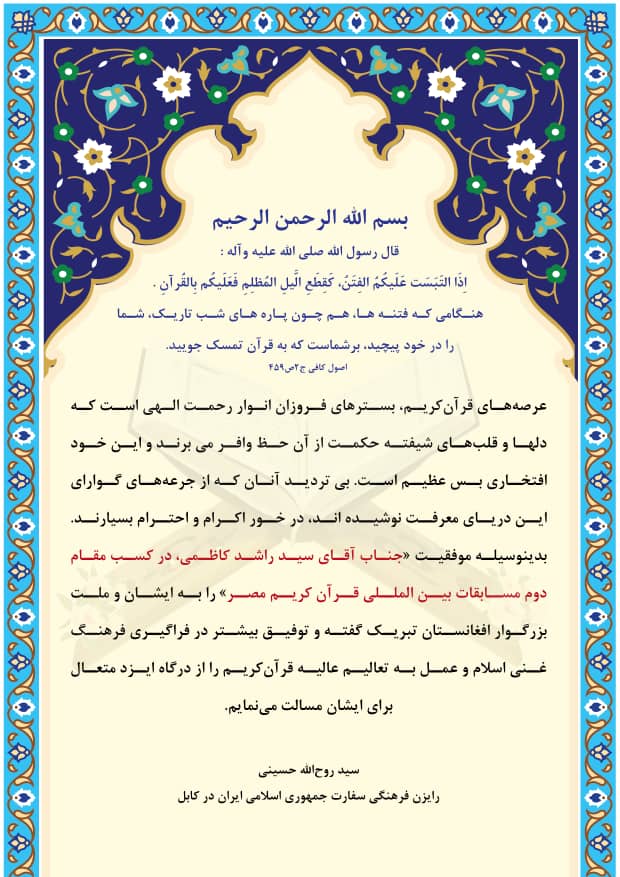 بسم الله الرحمن الرحیم
قال رسول الله صلی الله علیه وآله :
إِذَا التَبَسَت عَلَیکُمُ الفِتَنُ، کَقِطَعِ الَّیلِ المُظلِمِ فَعَلَیکُم بِالقُرآنِ .
هنگامی که فتنه ها، هم چون پاره های شب تاریک، شما
را در خود پیچید، برشماست که به قرآن تمسک جویید.
اصول کافی ج۲ص۴۵۹
عرصه‌های قرآن‌کریم، بسترهای فروزان انوار رحمت الهی است که
دلها و قلب‌های شیفته حکمت از آن حظ وافر می برند و این خود
افتخاری بس عظیم است. بی تردید آنان که از جرعه‌های گوارای
این دریای معرفت نوشیده اند، در خور اکرام و احترام بسیارند.
بدینوسیله موفقیت «جناب آقای سید راشد کاظمی، در کسب مقام
دوم مسابقات بین المللی قرآن کریم مصر» را به ایشان و ملت
بزرگوار افغانستان تبریک گفته و توفیق بیشتر در فراگیری فرهنگ
غنی اسلام و عمل به تعالیم عالیه قرآن‌کریم را از درگاه ایزد متعال
برای ایشان مسالت می‌نمایم.
سید روح‌الله حسینی
رایزن فرهنگی سفارت جمهوری اسلامی ایران در کابل